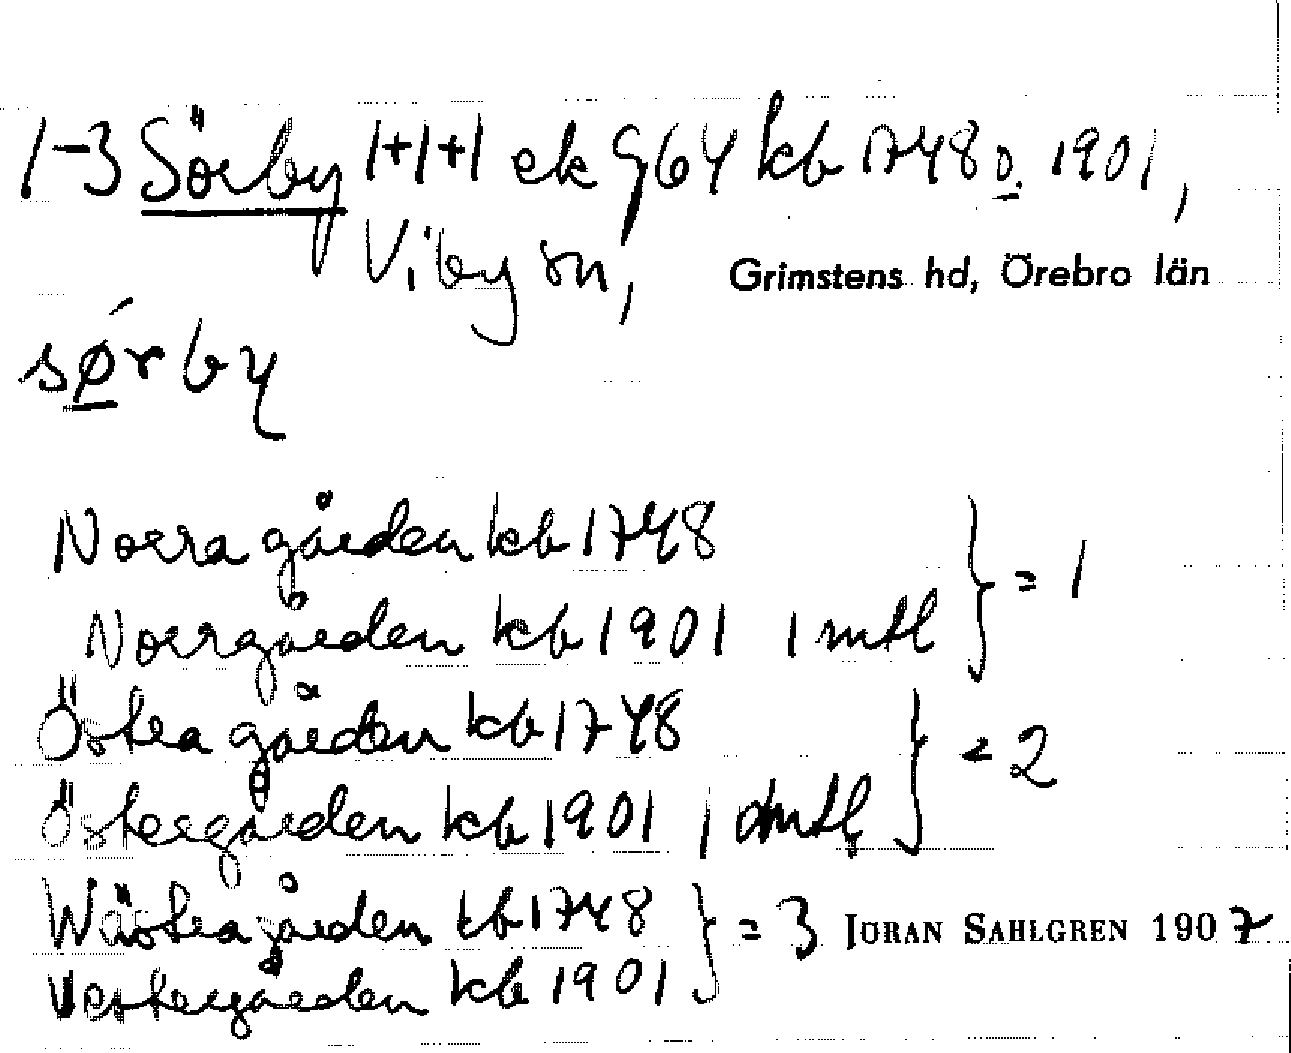 1-3 Sörby 1+1+1 ek G64 kb 1748 o. 1901,
Viby sn, Grimstens hd, Örebro län
sǿrby
Norra gården kb 1748
Norrgården kb 1901 1 mtl } = 1
Östra gården kb 1748
Östergården kb 1901 1 mtl } = 2
Wästra gården kb 1748
Vestergården kb 1901 } = 3 JÖRAN SAHLGREN 1907